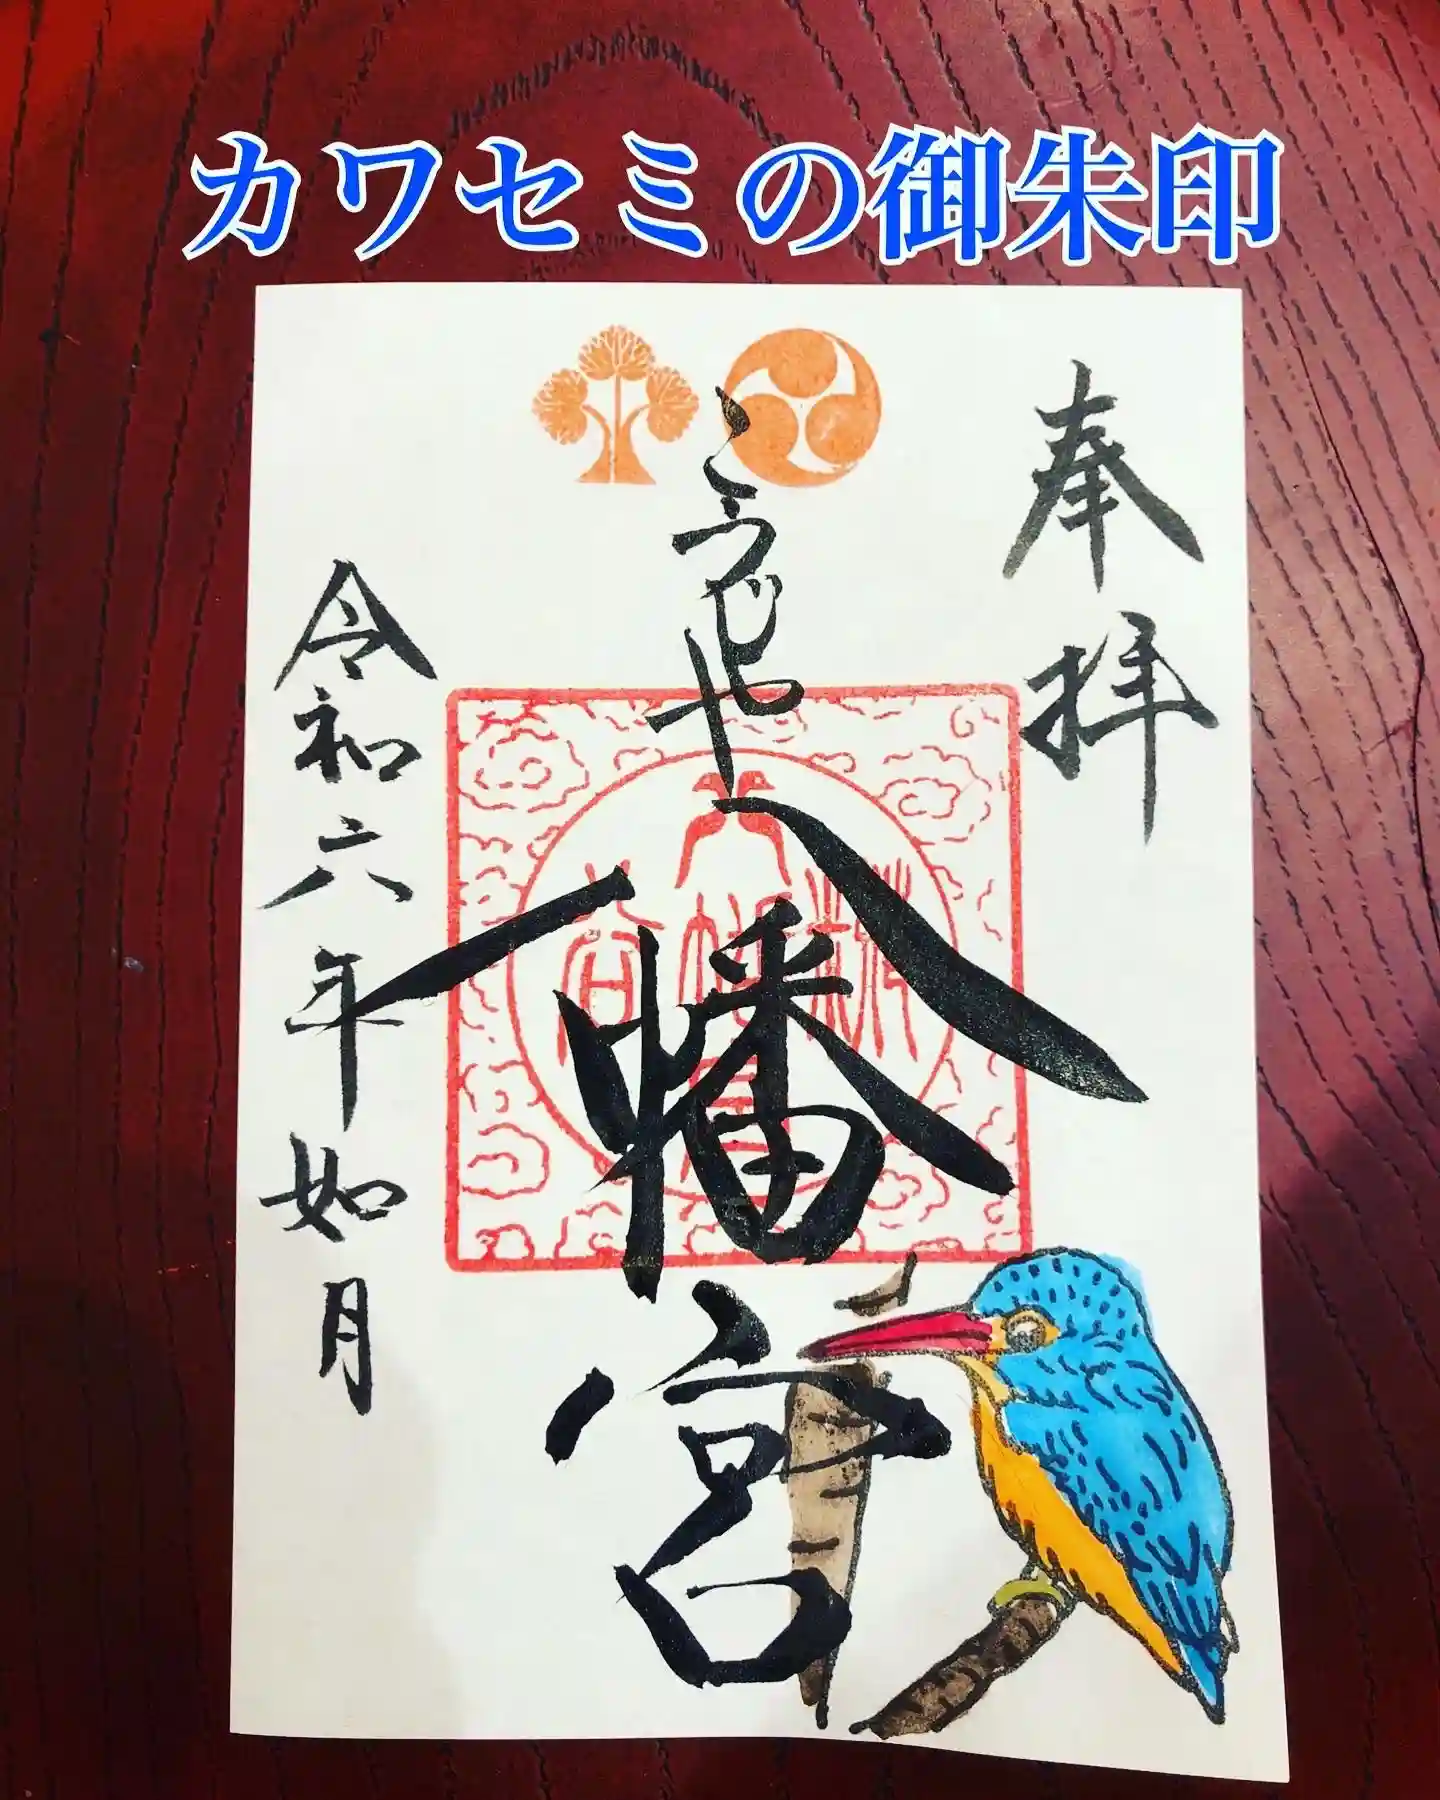 カワセミの御朱印
奉拝
こうじや八幡宮
令和六年如月